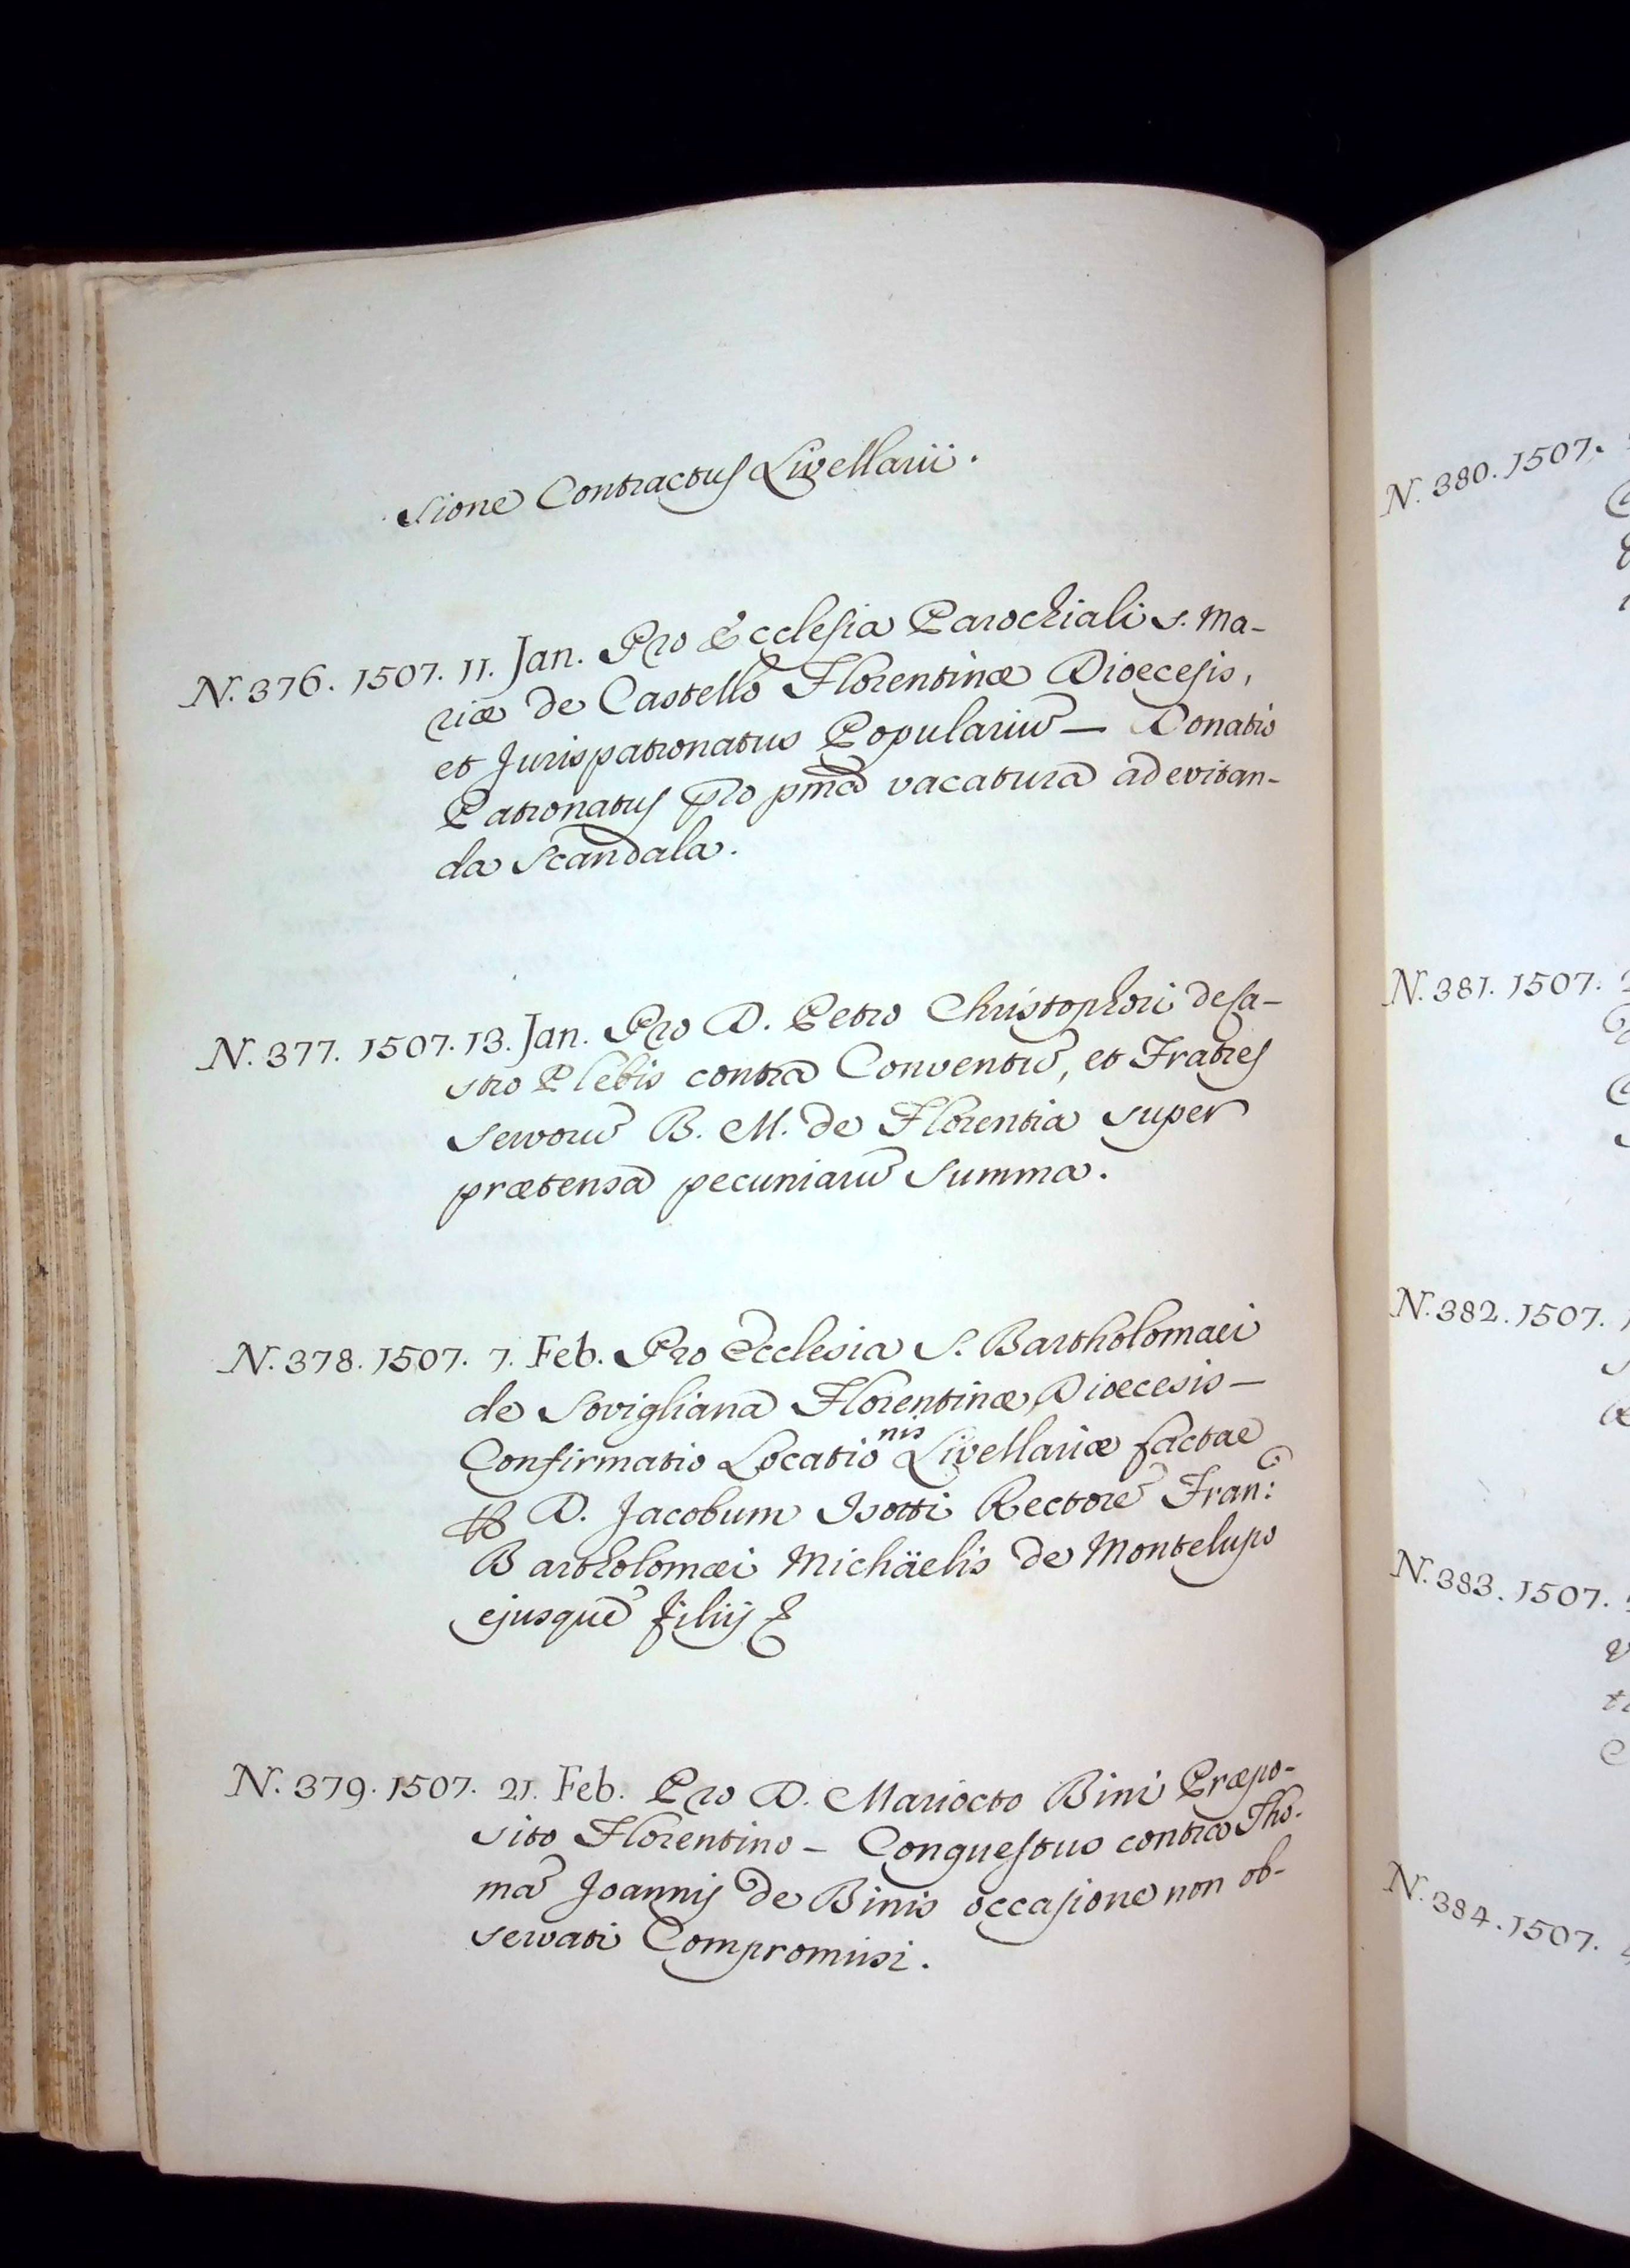 sione Contractus Livellarii.
N. 376. 1507. 11. Jan. Pro Ecclesia Parochiali S. Ma-
riæ de Castello Florentinæ Dioecesis,
et Jurispatronatus Populariũ — Donatio
Patronatus pro pmã vacatura ad evitan-
da Scandala.
N. 377. 1507. 13. Jan. Pro D. Petro Christophori de Ca-
stro Plebis contra Conventũ, et Fratres
Servorũ B. M. de Florentia super
prætensa pecuniarũ Summa.
N. 378. 1507. 7. Feb. Pro Ecclesia S. Bartholomaei
de Sovigliana Florentinæ Dioecesis —
Confirmatio Locationis Livellariæ factae
D. Jacobum Isotti Rectorẽ Fran:
Bartholomæi Michäelis de Montelupo
ejusque filiis
N. 379. 1507. 21. Feb. Pro D. Mariocto Bini Præpo-
sito Florentino — Conquestus contra Tho-
mã Joannis de Binis occasione non ob-
servati Compromissi.
N. 380. 1507.
N. 381. 1507.
N. 382. 1507.
N. 383. 1507.
N. 384. 1507.